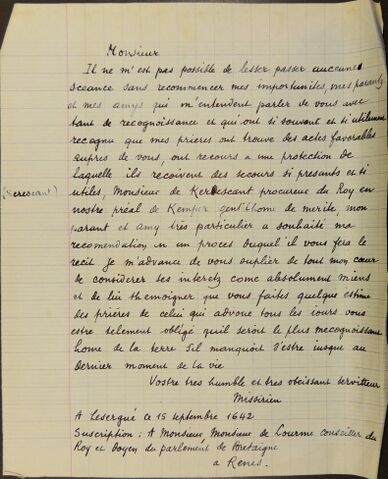 Monsieur
Il ne m'est pas possible de lesser passer auccune
sceance sans recommencer mes importunites, mes parantz
et mes amys qui m'entendent parler de vous avec
tant de recognoissance et qui ont si souvent et si utilement
recognu que mes prieres ont trouve des actes favorables
aupres de vous, ont recours a une protection de
laquelle ils recoivent des secours si presants et si
utiles, Monsieur de Kerdescant procureur du Roy en
(Kerescant)
nostre préal de Kemper gentilhome de merite, mon
parant et amy très particulier a souhaité ma
recomendation en un proces duquel il vous fera le
recit je m'advance de vous suplier de tout mon cœur
de considerer ses interetz come absolument miens
et de lui themoigner que vous faites quelque estime
des prieres de celui qui advoue tous les jours vous
estre telement obligé quil seroit le plus mecognoissant
home de la terre sil manquoit d'estre jusque au
dernier moment de la vie
Vostre tres humble et tres obeissant serviteur
Missirien
A Lesergué ce 15 septembre 1642
Suscription : A Monsieur, Monsieur de Lourme conseiller du
Roy et doyen du parlement de Bretaigne
a Renes.